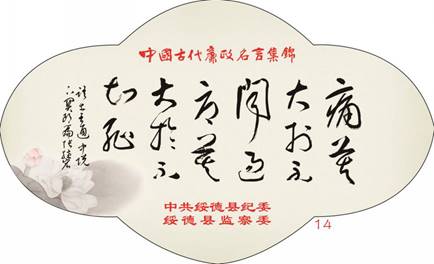 中國古代廉政名言集錦
痛莫
大於不
聞過
辱莫
大於不
知耻
語出王通中說
中共绥德县纪委
绥德县监察委
14